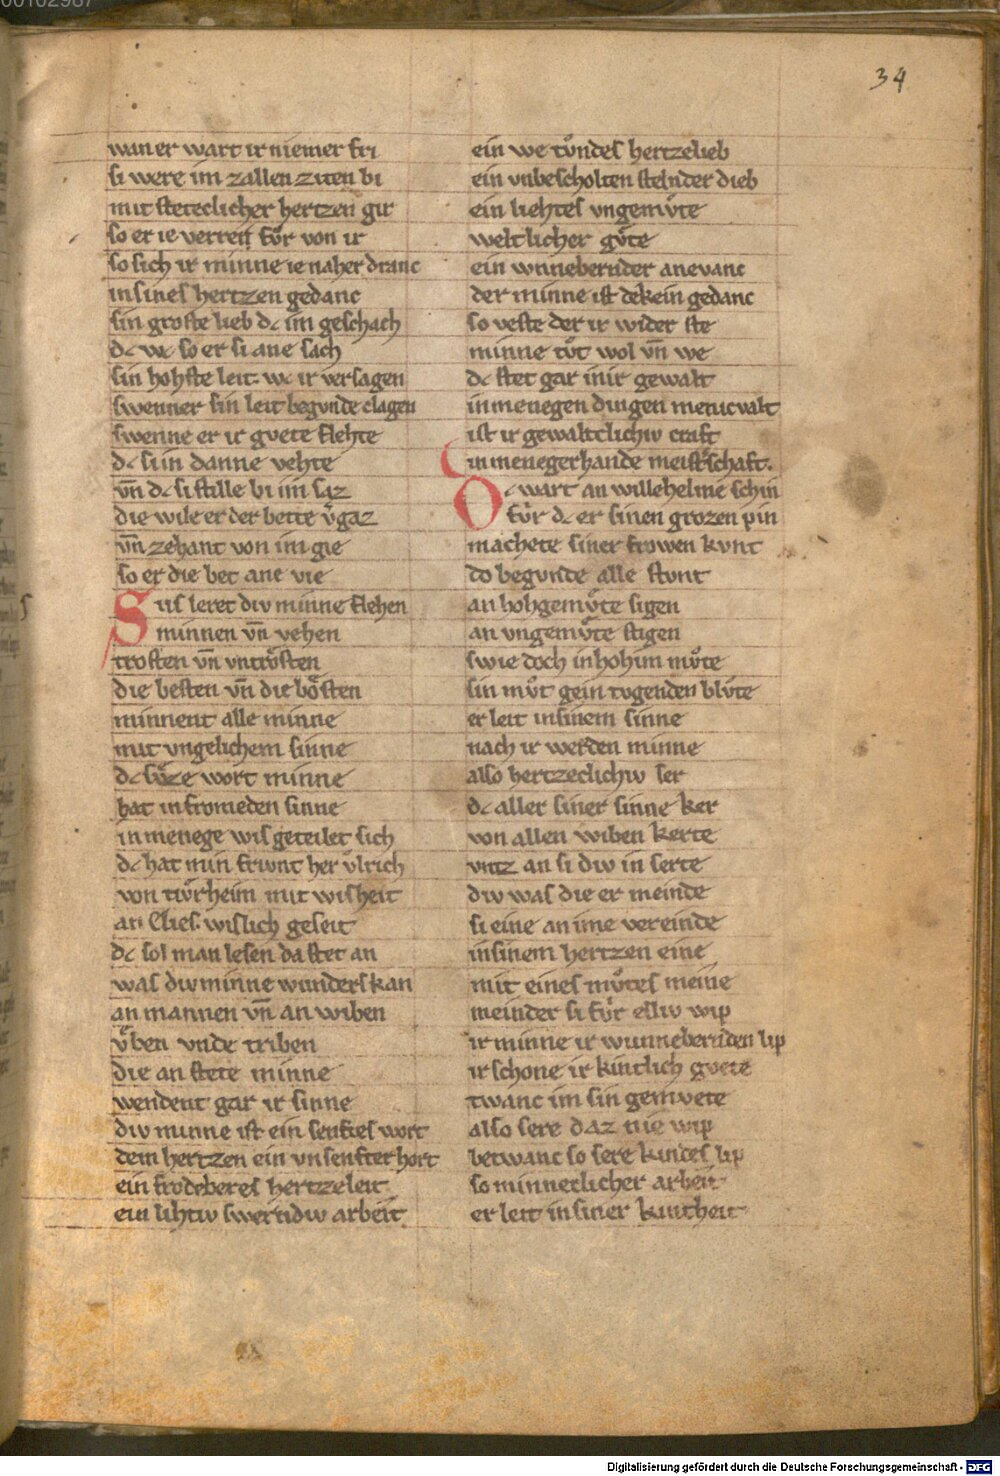 34
wan er wart ir niemer fri
si were im zallen ziten bi
mit steteclicher hertzen gir
so er ie verren fůr von ir
so sich ir minne ie naher dranc
in sines hertzen gedanc
sin groste lieb dc im geschach
dc wc so er si ane sach
sin hohste leit. wc ir versagen
swenner sin leit begunde clagen
swenne er ir guete flehte
dc si in danne vehte
vn̄ dc si stille bi im saz
die wile er der bette v̾gaz
vn̄ zehant von im gie
so er die bet ane vie
Sus leret div minne flehen
minnen vn̄ vehen
trosten vn̄ vntrôsten
die besten vn̄ die bôsten
minnent alle minne
mit vngelichem sinne
dc sůze wort minne
hat in fromeden sinne
in menege wis geteilet sich
dc hat min frivnt her v̊lrich
von tv̊rheim mit wisheit
an Clies. wislich geseit
dc sol man lesen da stet an
was div minne wunders kan
an mannen vn̄ an wiben
v̊ben vnde triben
die an stete minne
wendent gar ir sinne
div minne ist ein senftes wort
dem hertzen ein vnsenfter hort
ein frodeberes hertzeleit
ein lihtiv swerndiv arbeit
ein we tv̊ndes hertzelieb
ein vnbescholten stelnder dieb
ein liehtes vngemv̊te
weltlicher gv̊te
ein wnnebernder anevanc
der minne ist dekein gedanc
so veste der ir wider ste
minne tv̊t wol vn̄ we
dc stet gar in ir gewalt
in menegen dingen menicvalt
ist ir gewalteclichiv craft
in meneger hande meist̾schaft.
Dc wart an willehelme schin
fûr dc er sinen grozen pin
machete siner frowen kvnt
do begvnde alle stvnt
an hohgemv̊te sigen
an vngemv̊te stigen
swie doch in hohim mv̊te
sin mv̊t gein tvgenden blv̊te
er leit in sinem sinne
nach ir werden minne
also hertzeclichiv ser
dc aller siner sinne ker
von allen wiben kerte
vntz an si div in serte
div was die er meinde
si eine an ime vereinde
in sinem hertzen eine
mit eines mv̊tes meine
meinder si fv̊r elliv wip
ir minne ir wunnebernden lip
ir schone ir kintlich gvete
twanc im sin gemvete
also sere daz nie wip
betwanc so sere kindes lip
so minneclicher arbeit
er leit in siner kintheit
Digitalisierung gefördert durch die Deutsche Forschungsgemeinschaft - DFG